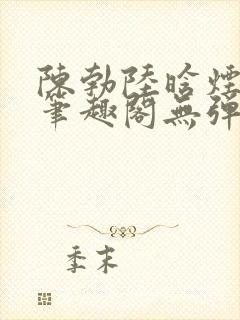 陳勃陸晗煙
筆趣閣無彈
季末